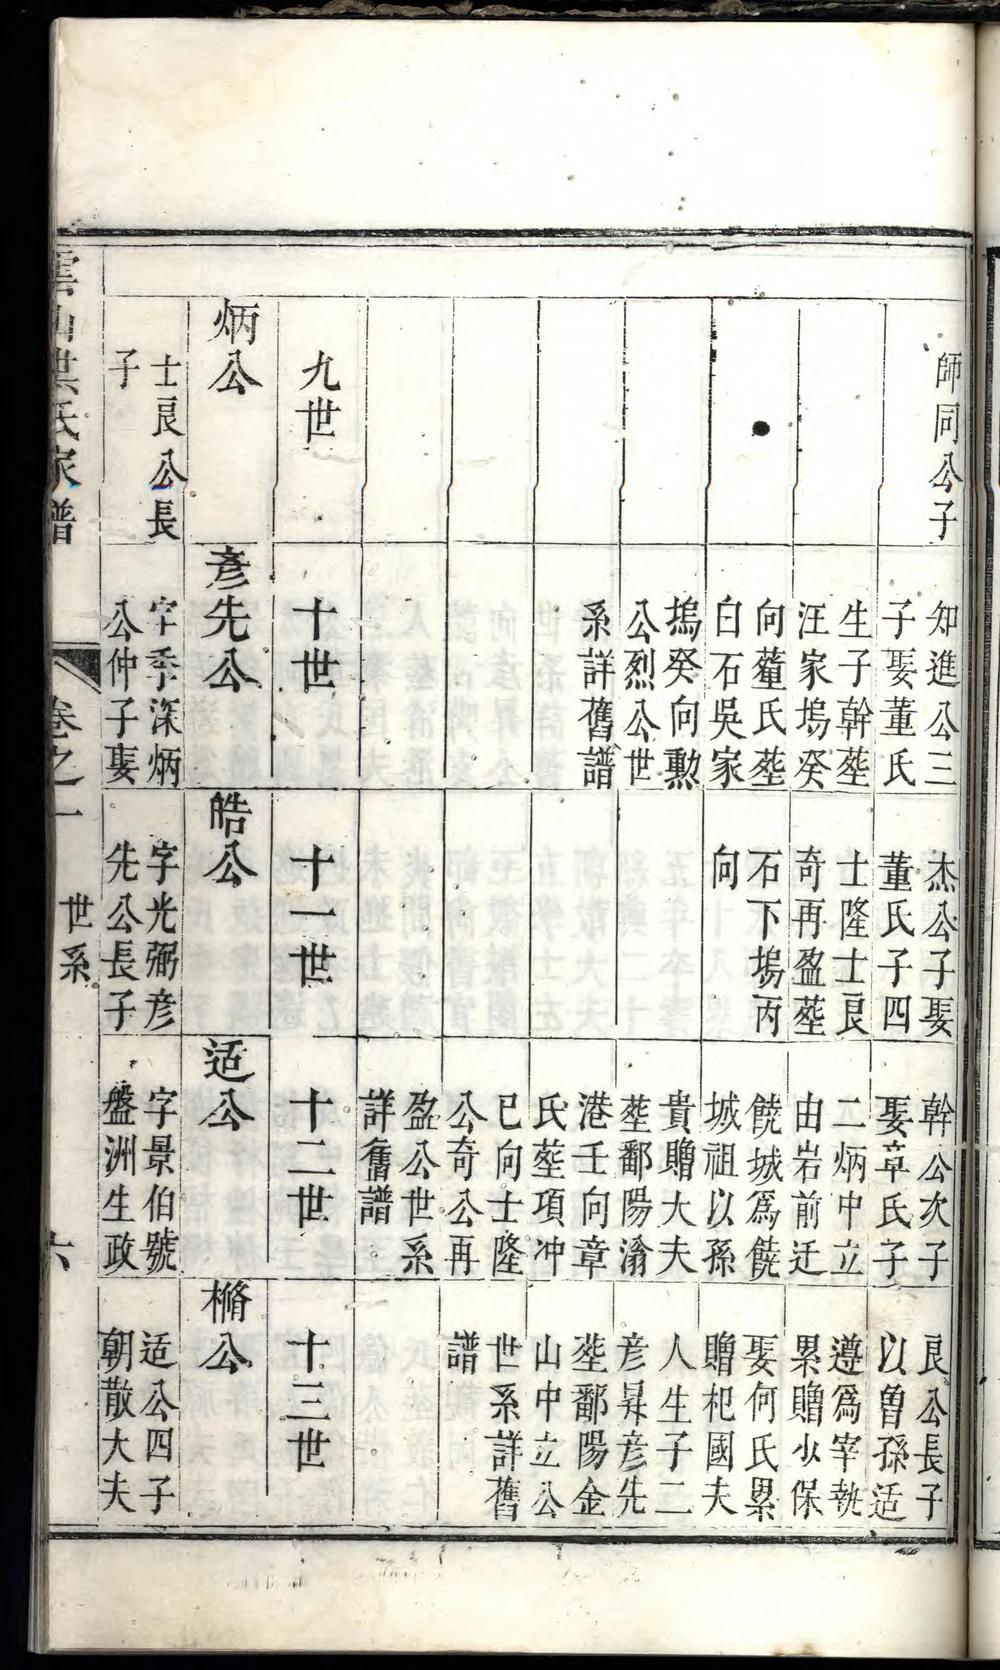 師同公子
知進公三
子娶董氏
生子幹塟
汪家塢癸
向董氏塟
白石吳家
塢癸向勲
公烈公世
系詳舊譜
杰公子娶
董氏子四
士隆士良
奇再盈塟
石下塢丙
向
幹公次子
娶章氏子
二炳中立
由岩前迁
饒城爲饒
城祖以孫
貴贈大夫
塟鄱陽滃
港壬向章
氏塟項冲
巳向士隆
公奇公再
盈公世系
詳舊譜
良公長子
以曾孫适
遵爲宰執
累贈少保
娶何氏累
贈杞國夫
人生子二
彦昇彦先
塟鄱陽金
山中立公
世系詳舊
譜
九世
十世
十一世
十二世
十三世
炳公
士良公長
子
彥先公
字季深炳
公仲子娶
皓公
字光弼彦
先公長子
适公
字景伯號
盤洲生政
樇公
适公四子
朝散大夫
雲山洪氏家譜
卷之一
世系
六